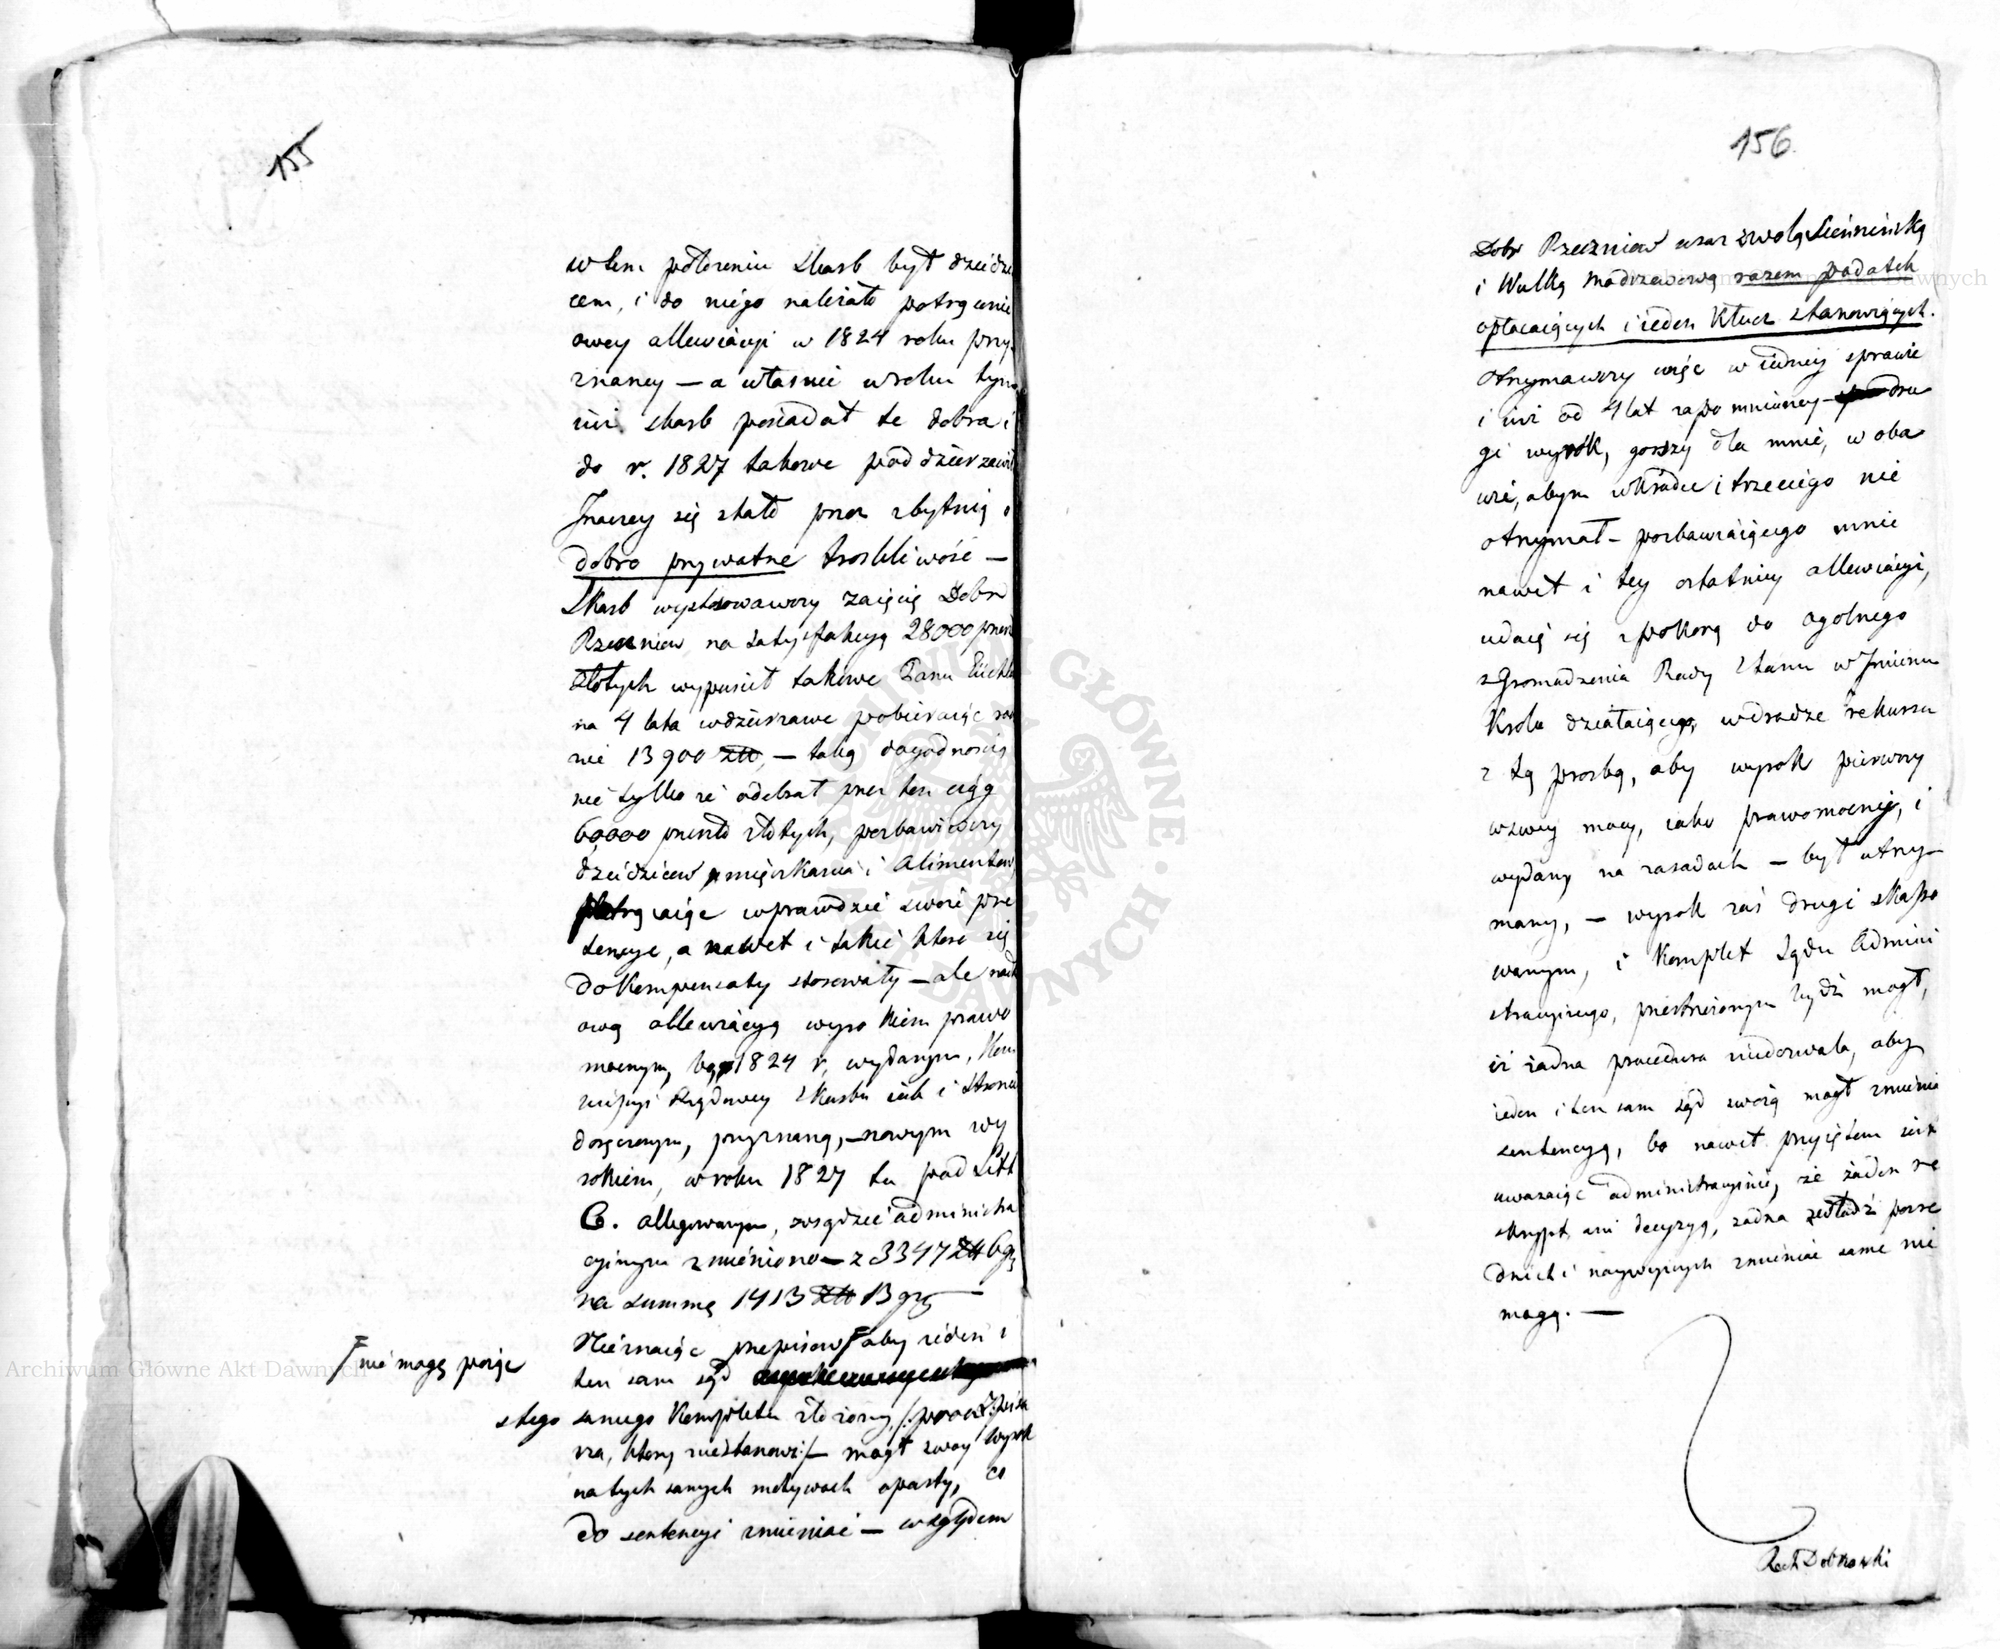 155
w tem położeniu Skarb był dziedzi
cem, i do niego należało potrącenie
owey allewiacyi w 1824 roku przy
znaney — a właśnie w roku tym
iuż Skarb posiadał te dobra i
do r. 1827 takowe pod dzierzawił
Inaczey się stało przez zbytnią o
dobro prywatne troskliwość —
Skarb wystosowawszy zaięcie Dobr
Rzeczniow na satysfakcyą 28000 przeszł
złotych wypuścił takowe Panu
na 4 lata w dzierzawe pobieraiąc rocz
nie 13900 złł, — taką dogodnością
nie tylko że odebrał przez ten ciąg
60,000 przeszło złotych, pozbawiwszy
dziedziców mięszkania i Alimentów
potrącaiąc wprawdzie swoie pre
tensye, a nawet i takie które się
do Kompensaty stosowały — ale nadto
ową allewiacyą wyrokiem prawo
mocnym, w 1824 r, wydanym, Kom
missyi Rządowey Skarbu iak i stronie
doręczonym, przyznaną, — nowym wy
rokiem, w roku 1827 tu pod Litt
C. allegowanym, w sądzie administra
cyinym zmieniono — z 3347 złł 6 gr
na summę 1413 złł 13 gr —
Nieznaiąc przepisow F aby ieden i
F nie mogę poiąć
ten sam sąd
z tego samego Kompletu złożony /: prócz Pisa
rza, który niestanowi :/ — mogł swoy wyrok
na tych samych motywach oparty, co
do sentencyi zmieniać — względem
156.
Dobr Rzeczniow oraz z wolą Sieńnieńską
i Wulką Modrzewową razem podatek
opłacaiących i ieden Klucz stanowiących.
Otrzymawszy więc w iedney sprawie
i iuż od 4 lat zapomnianey — dru
gi wyrok, gorszy dla mnie, w oba
wie, abym wkrótce i trzeciego nie
otrzymał — pozbawiaiącego mnie
nawet i tey ostatniey allewiacyi,
udaię się z pokorą do ogolnego
zgromadzenia Rady Stanu w Imieniu
Krola działaiącego, w drodze rekursu
z tą prozbą, aby wyrok pierwszy
w swey mocy, iako prawomocny, i
wydany na zasadach — był utrzy
many, — wyrok zaś drugi skasso
wanym, i Komplet Sądu Admini
stracyinego, przestrzeżonym bydź mogł,
iż żadna procedura niedozwala, aby
ieden i ten sam sąd swoią mogł zmieniać
sentencyą, bo nawet przyiętem iest
uważaiąc administracyinie, że żaden re
skrypt, ani decyzyą, żadna z władz posre
dnich i naywyższych zmieniać same nie
mogą. —